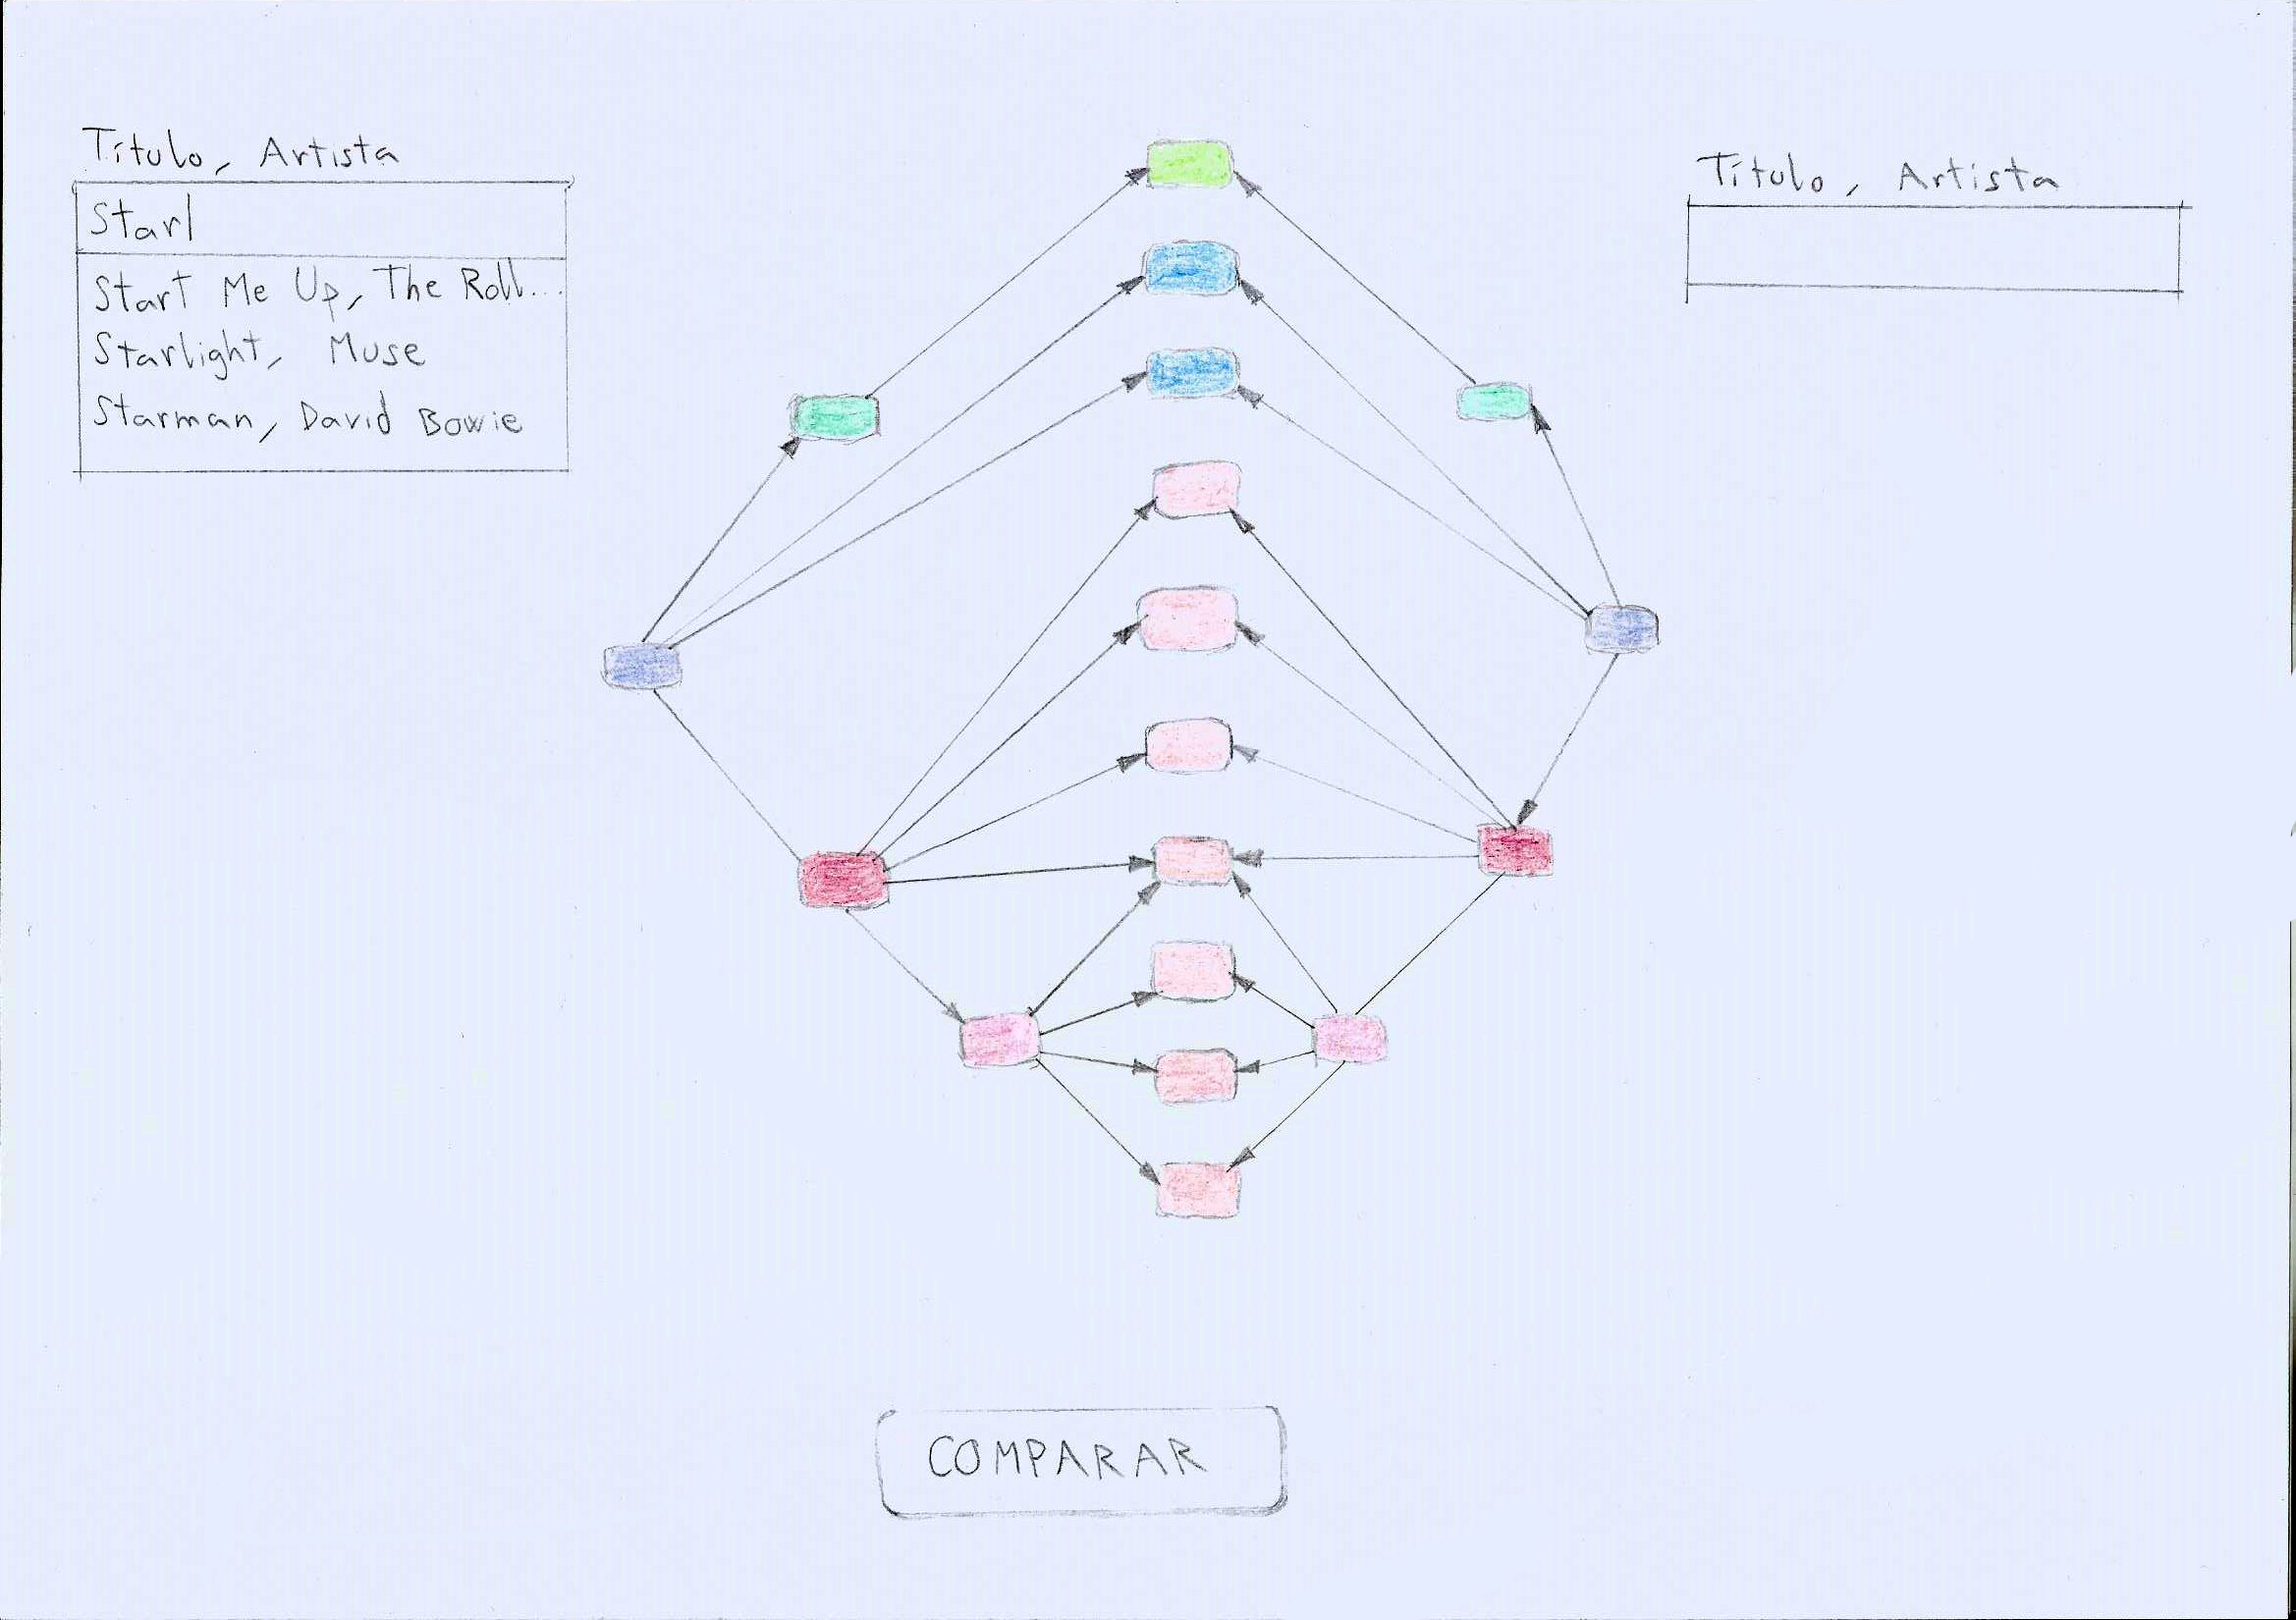 Título, Artista
Star|
Start Me Up, The Roll...
Starlight, Muse
Starman, David Bowie
Título, Artista
COMPARAR